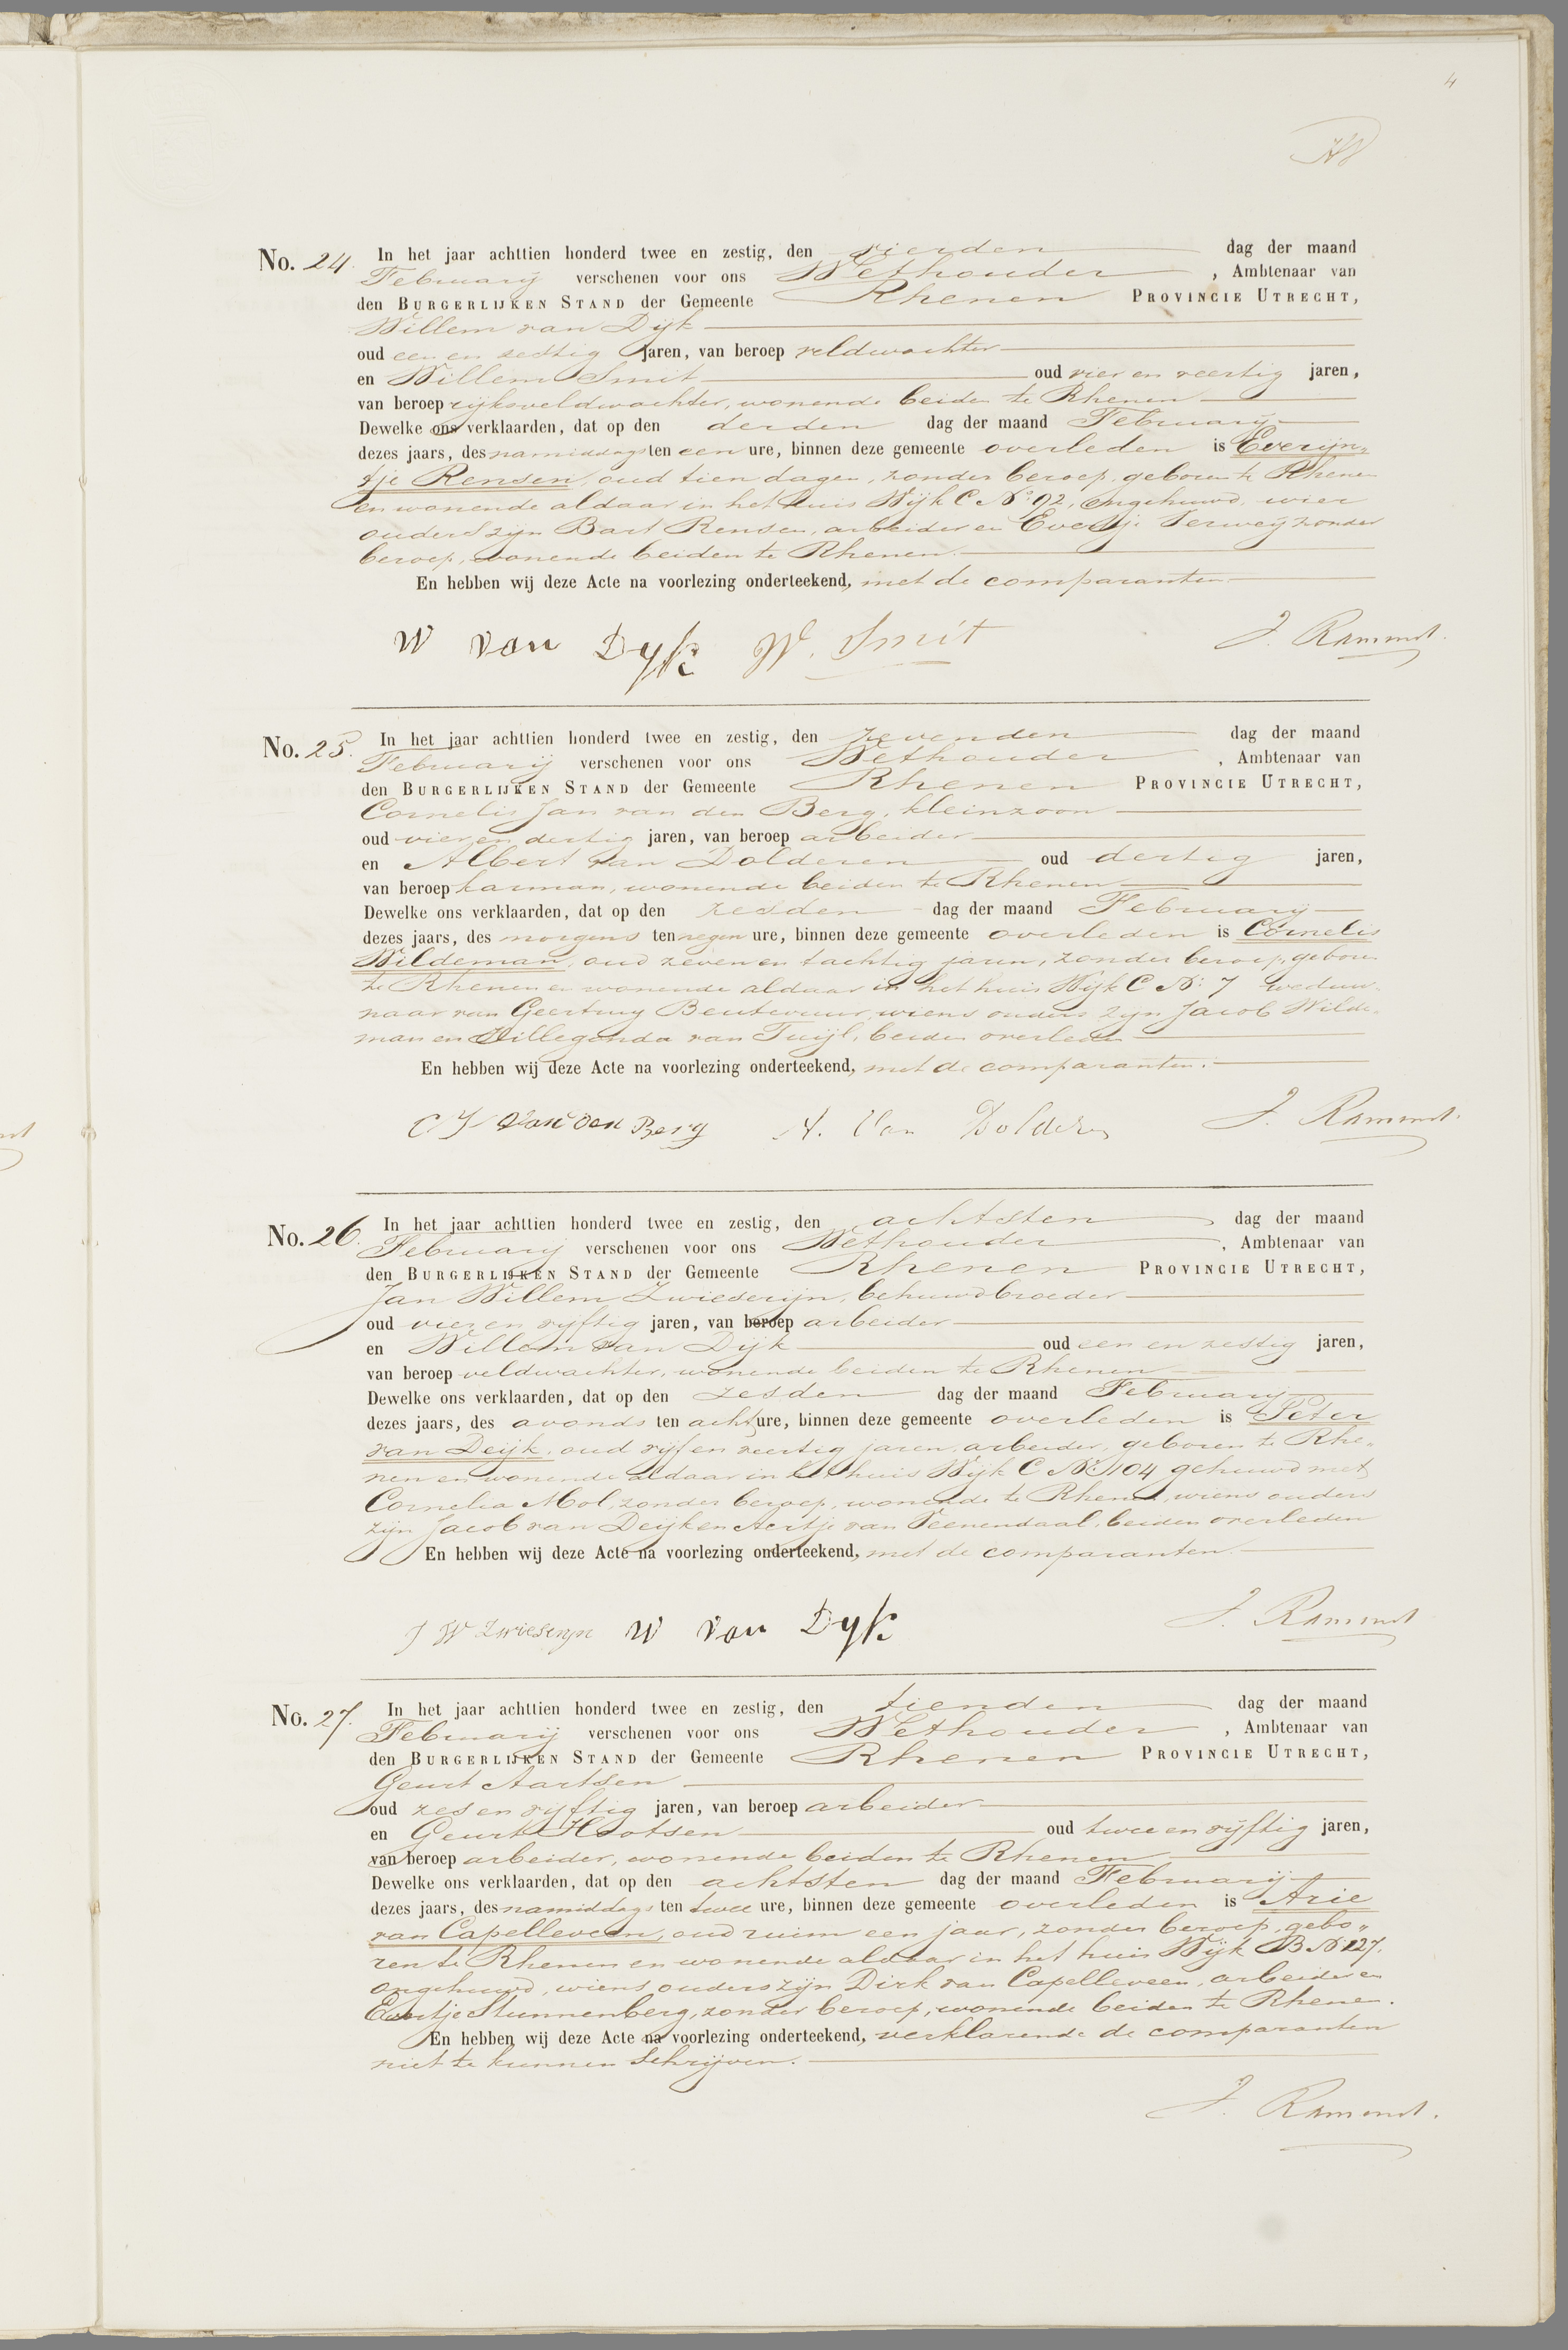 4
No. 24. In het jaar achttien honderd twee en zestig, den vierden dag der maand
February verschenen voor ons Wethouder, Ambtenaar van
den BURGERLIJKEN STAND der Gemeente Rhenen PROVINCIE UTRECHT,
Willem van Dijk
oud een en zestig jaren, van beroep veldwachter
en Willem Smit oud vier en veertig jaren,
van beroep rijksveldwachter, wonende beiden te Rhenen
Dewelke ons verklaarden, dat op den derden dag der maand February
dezes jaars, des namiddags ten een ure, binnen deze gemeente overleden is Everijn„
tje Rensen, oud tien dagen, zonder beroep, geboren te Rhenen
en wonende aldaar in het huis Wijk C No. 92, ongehuwd, wier
ouders zijn Bart Rensen, arbeider en Evertje Terweij zonder
beroep, wonende beiden te Rhenen.
En hebben wij deze Acte na voorlezing onderteekend, met de comparanten.
W van Dyk W. Smit J. Rammst.
No. 25. In het jaar achttien honderd twee en zestig, den zevenden dag der maand
February verschenen voor ons Wethouder, Ambtenaar van
den BURGERLIJKEN STAND der Gemeente Rhenen PROVINCIE UTRECHT,
Cornelis Jan van den Berg, kleinzoon
oud vier en dertig jaren, van beroep arbeider
en Albert van Dolderen oud dertig jaren,
van beroep karman, wonende beiden te Rhenen
Dewelke ons verklaarden, dat op den zesden dag der maand February
dezes jaars, des morgens ten negen ure, binnen deze gemeente overleden is Cornelis
Wildeman, oud zeven en tachtig jaren, zonder beroep, geboren
te Rhenen en wonende aldaar in het huis Wijk C No. 7 weduw„
naar van Geertruy wiens ouders zijn Jacob Wilde„
man en Hillegonda van Tuijl, beiden overleden
En hebben wij deze Acte na voorlezing onderteekend, met de comparanten.
C J van den Berg A. Van Dolderen J. Rammst.
No. 26. In het jaar achttien honderd twee en zestig, den achtsten dag der maand
February verschenen voor ons Wethouder, Ambtenaar van
den BURGERLIJKEN STAND der Gemeente Rhenen PROVINCIE UTRECHT,
Jan Willem Zwieserijn, behuwdbroeder
oud vier en vyftig jaren, van beroep arbeider
en Willem van Dijk oud een en zestig jaren,
van beroep veldwachter, wonende beiden te Rhenen
Dewelke ons verklaarden, dat op den zesden dag der maand February
dezes jaars, des avonds ten acht ure, binnen deze gemeente overleden is Peter
van Deijk, oud vijf en veertig jaren, arbeider, geboren te Rhe„
nen en wonende aldaar in het huis Wijk C No. 104 gehuwd met
Cornelia Mol, zonder beroep, wonende te Rhenen, wiens ouders
zijn Jacob van Deijk en Aertje van Veenendaal, beiden overleden
En hebben wij deze Acte na voorlezing onderteekend, met de comparanten.
J W Zwieserijn W van Dyk J. Rammst
No. 27. In het jaar achttien honderd twee en zestig, den tienden dag der maand
February verschenen voor ons Wethouder, Ambtenaar van
den BURGERLIJKEN STAND der Gemeente Rhenen PROVINCIE UTRECHT,
Geurt Aartsen
oud zes en vyftig jaren, van beroep arbeider
en Geurt Hootsen oud twee en vyftig jaren,
van beroep arbeider, wonende beiden te Rhenen
Dewelke ons verklaarden, dat op den achtsten dag der maand February
dezes jaars, des namiddags ten twee ure, binnen deze gemeente overleden is Arie
van Capelleveen, oud ruim een jaar, zonder beroep, gebo„
ren te Rhenen en wonende aldaar in het huis Wijk B No. 127.
ongehuwd, wiens ouders zijn Dirk van Capelleveen, arbeider en
Evertje Stunnenberg, zonder beroep, wonende beiden te Rhenen.
En hebben wij deze Acte na voorlezing onderteekend, verklarende de comparanten
niet te kunnen schrijven.
J. Rammst.